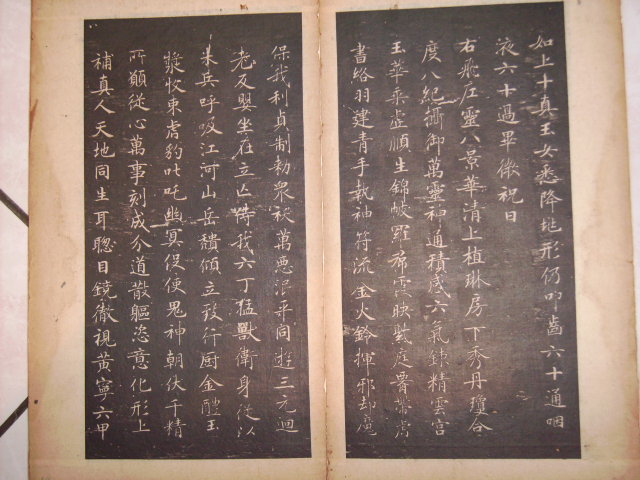 如上十真玉女悉降地形仍叩齒六十通咽
液六十過畢微祝曰
右飛左靈八景華清上植琳房下秀丹瓊合
度八紀攝御萬靈神通積感六氣鍊精雲宮
玉華乘虛順生錦帔羅帬霞映紫庭
書絡羽建青手執神符流金火鈴揮邪却魔
保我利貞制勑眾祅萬惡泯平同遊三元迴
老反嬰坐在立亡侍我六丁猛獸衛身從以
朱兵呼吸江河山岳積傾立致行厨金醴玉
漿收束虎豹叱吒幽冥役使鬼神朝伏千精
所願從心萬事刻成分道散軀恣意化形上
補真人天地同生耳聰目鏡徹視黃寧六甲